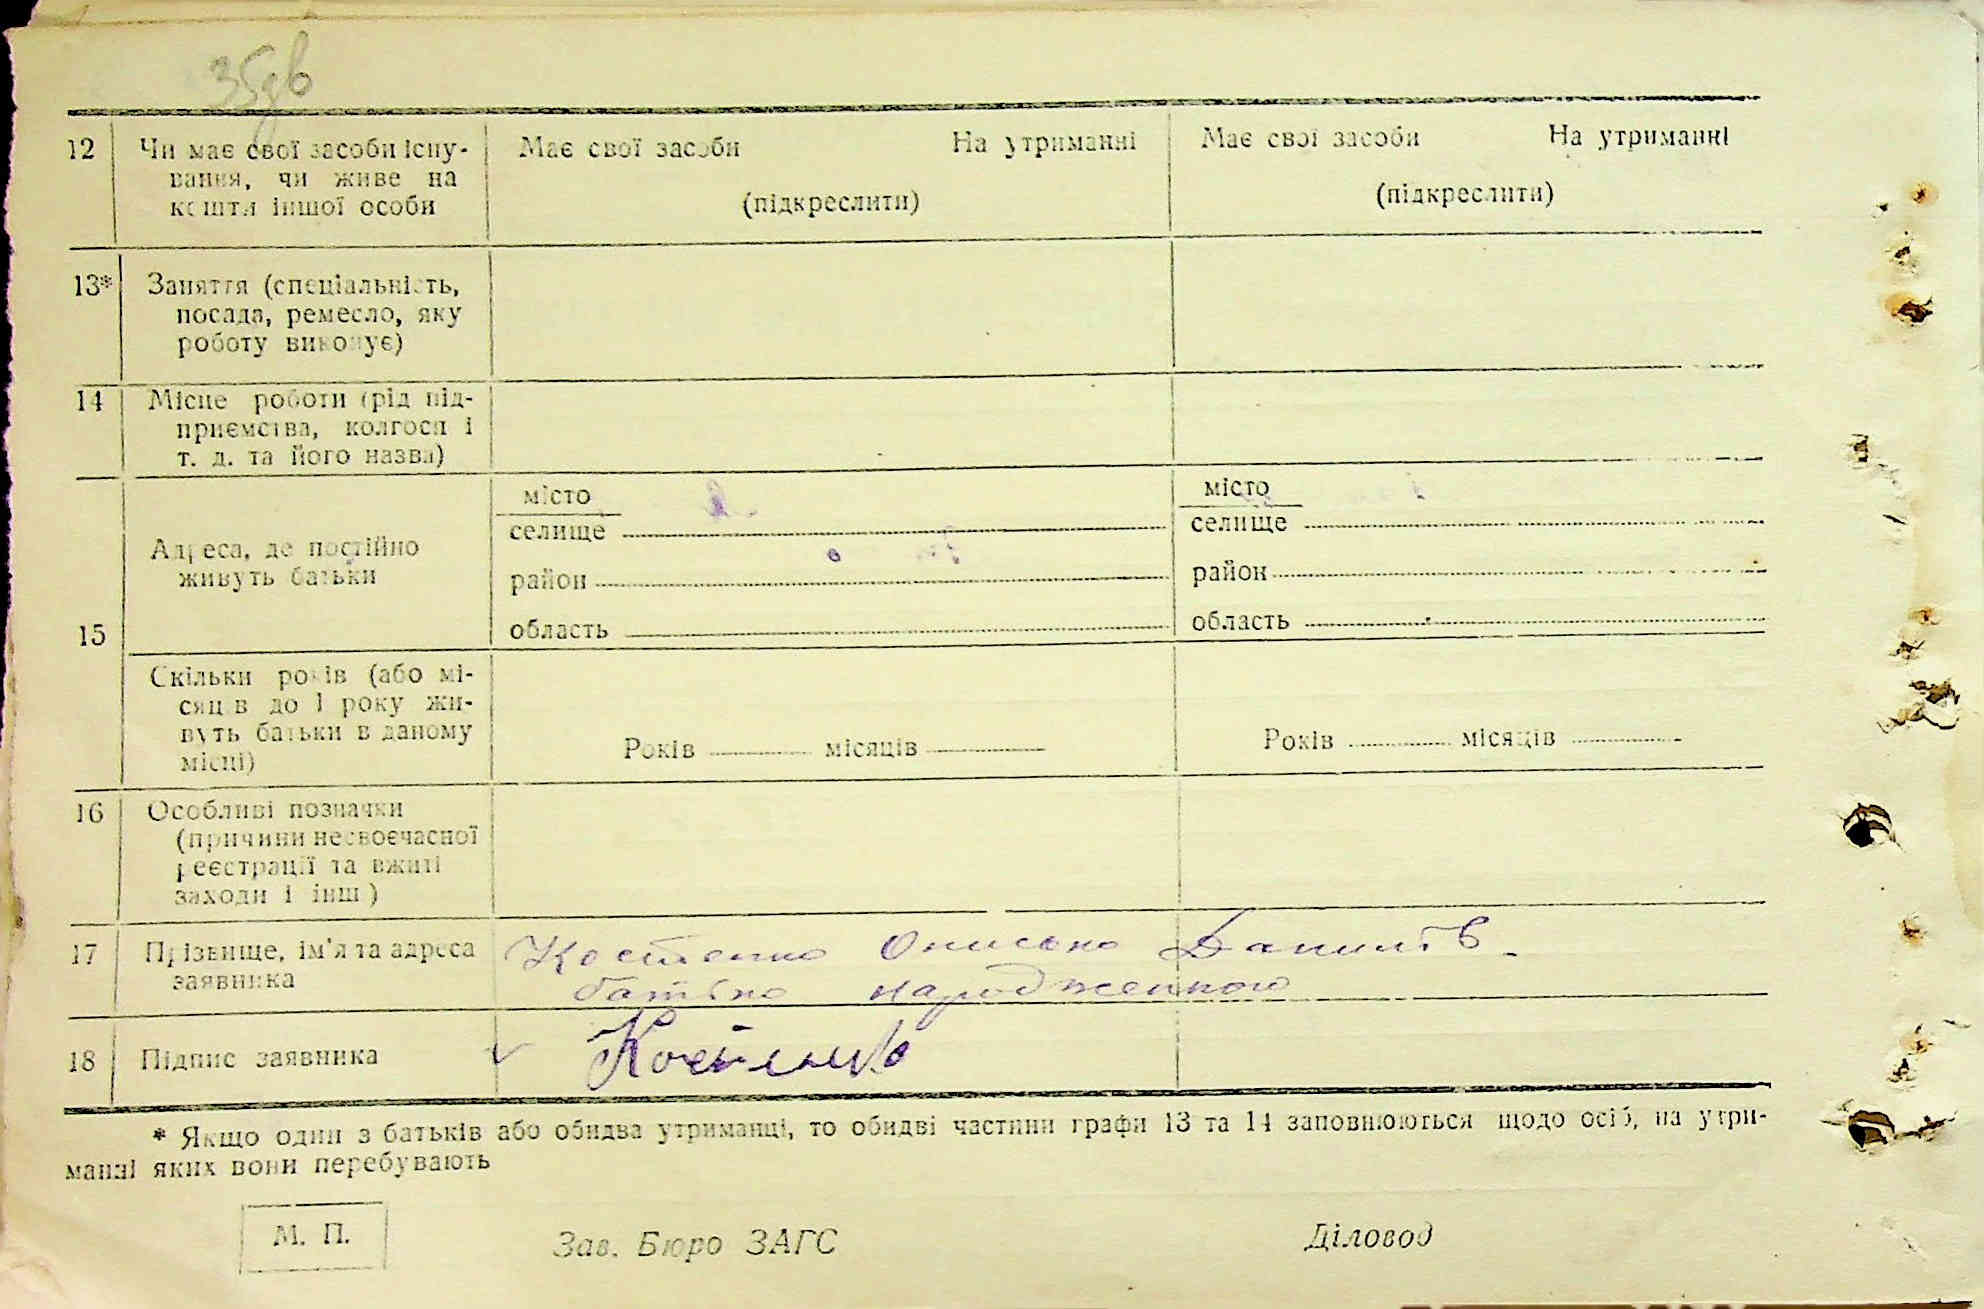 35дв
12 Чи має свої засоби існу- Має свої засоби На утриманні Має свої засоби На утриманні
вання, чи живе на
кошти іншої особи (підкреслити) (підкреслити)
13* Заняття (спеціальність,
посада, ремесло, яку
роботу виконує)
14 Місце роботи (рід під-
приємства, колгосп і
т. д. та його назва)
місто місто
селище селище
Адреса, де постійно
живуть батьки
район район
область область
15
Скільки років (або мі-
сяців до 1 року жи-
вуть батьки в даному
місці)
Років місяців Років місяців
16 Особливі позначки
(причини несвоєчасної
реєстрації та вжиті
заходи і інш)
17 Прізвище, ім'я та адреса Костенко Онисько Данилів
заявника батько народженного
18 Підпис заявника Костенко
* Якщо один з батьків або обидва утриманці, то обидві частини графи 13 та 14 заповнюються щодо осіб, на утри-
манні яких вони перебувають
М. П. Зав. Бюро ЗАГС Діловод